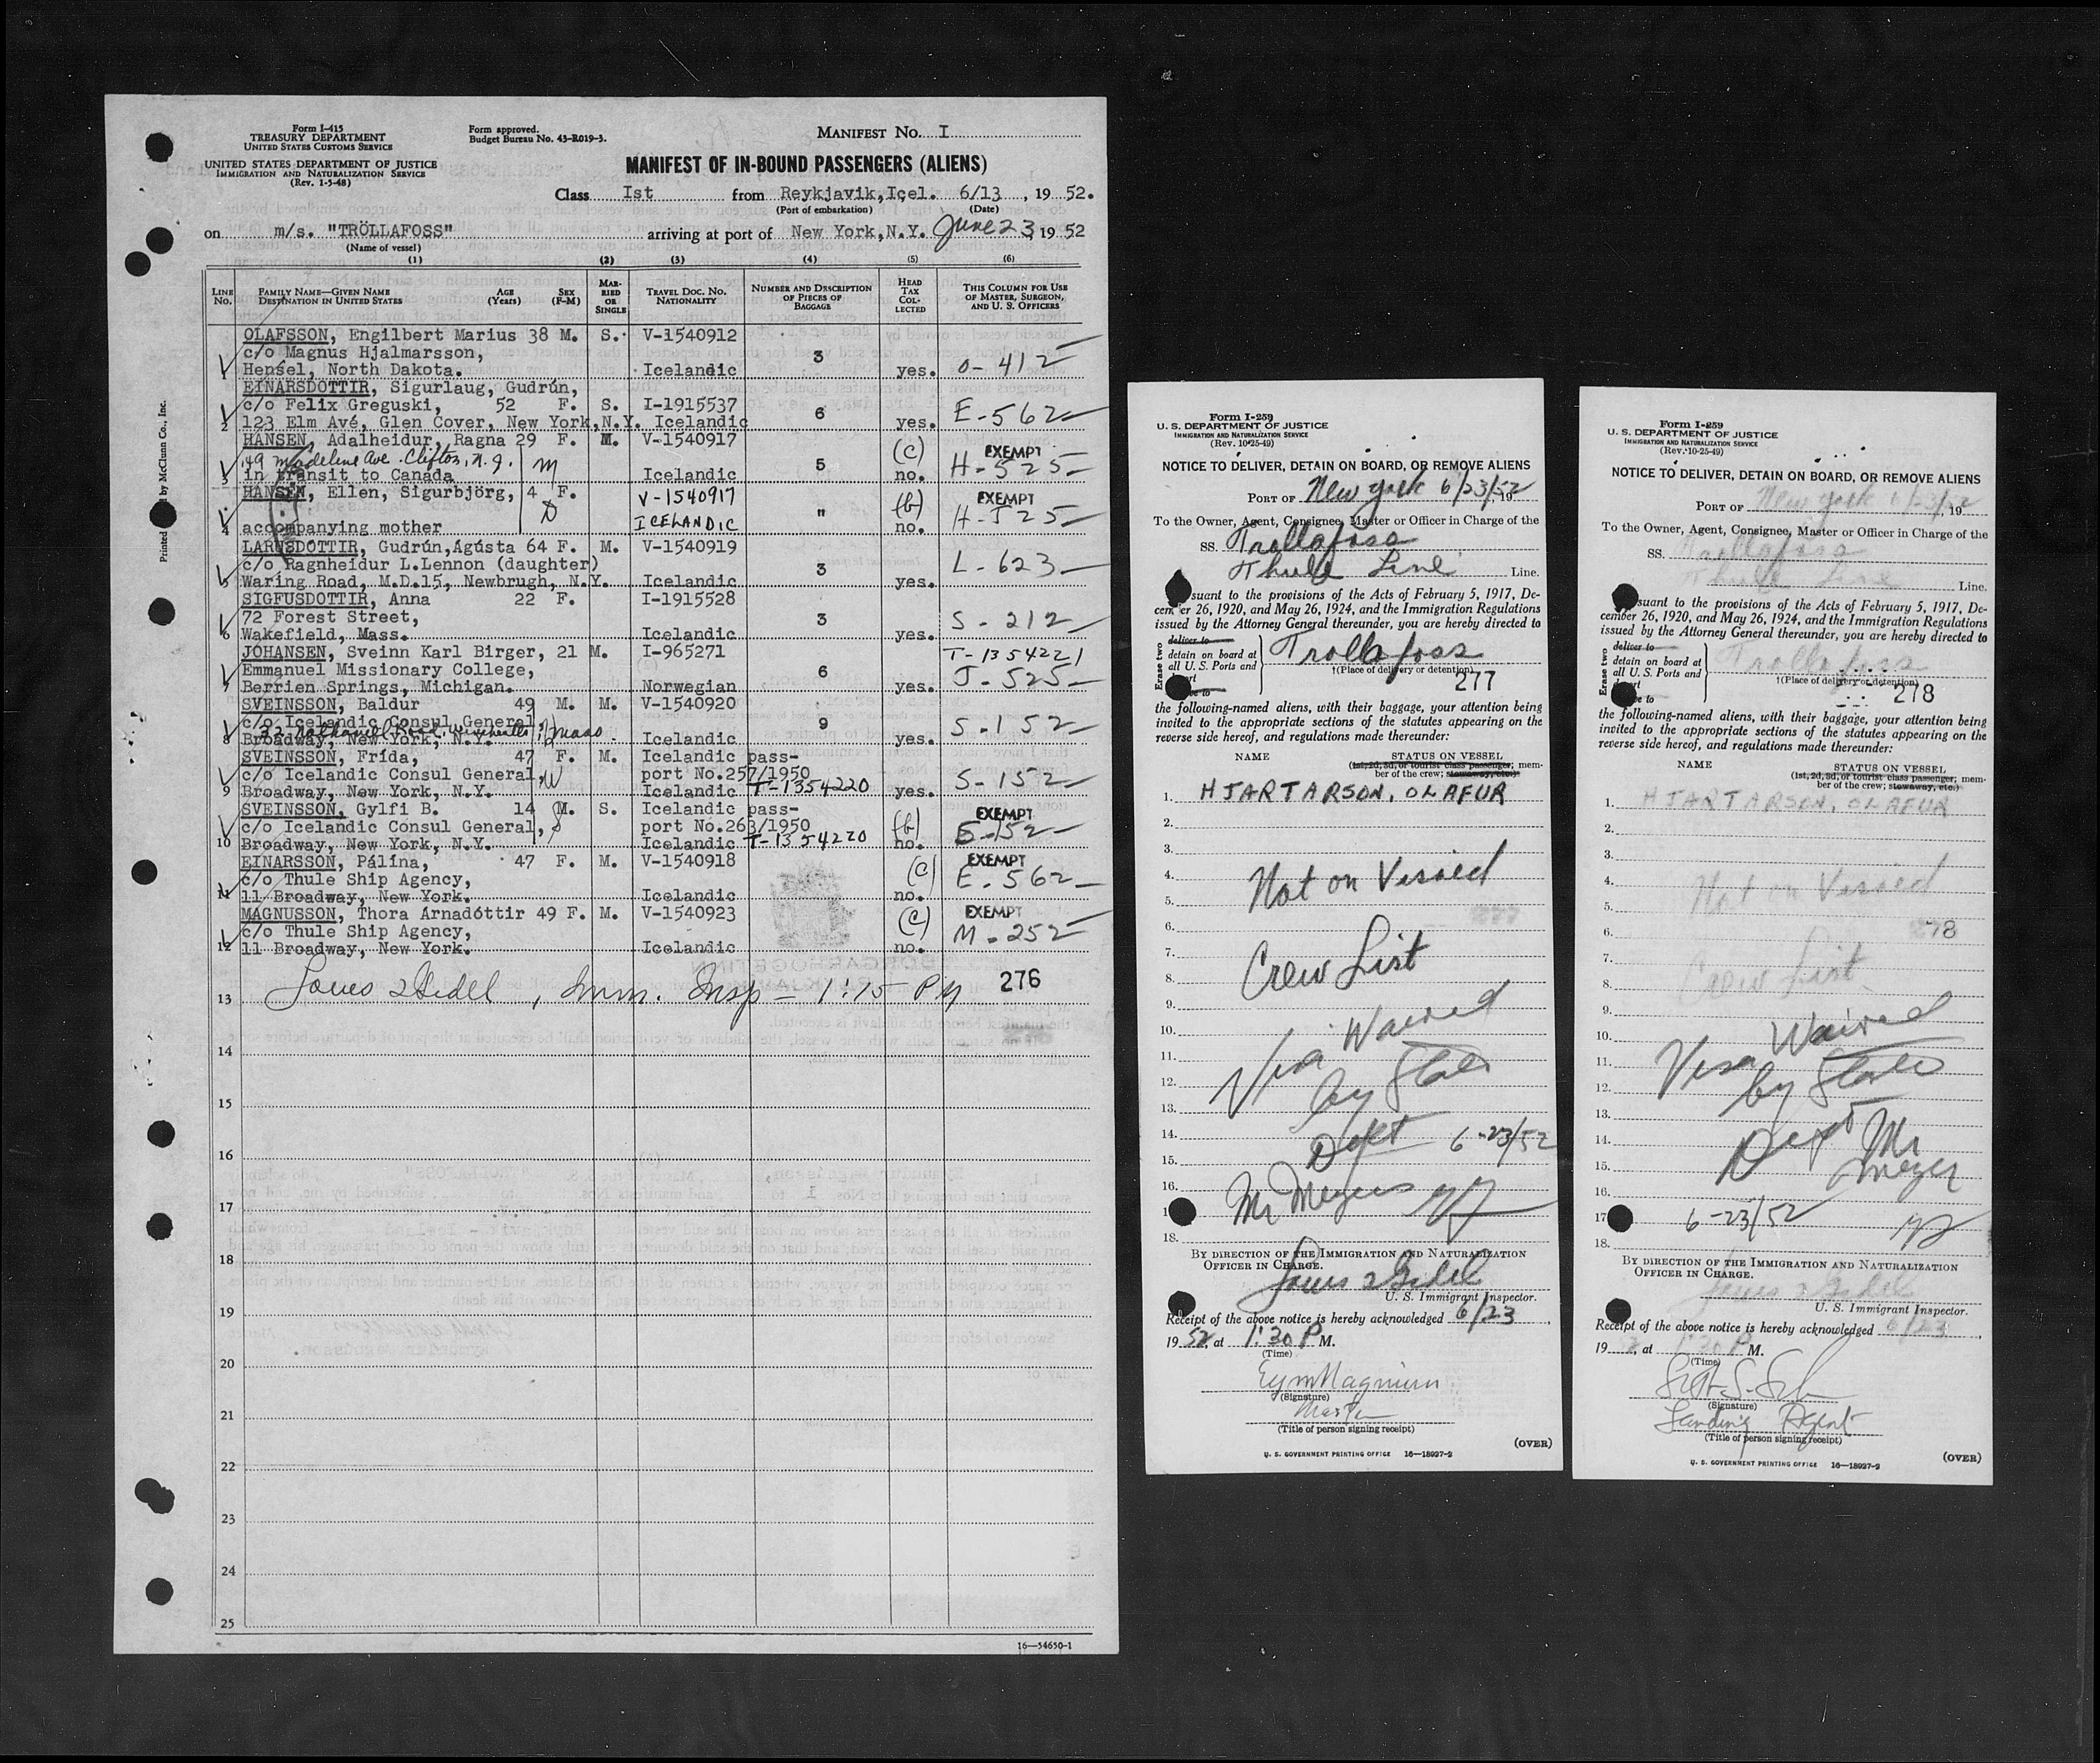 Form I-415
TREASURY DEPARTMENT
UNITED STATES CUSTOMS SERVICE
UNITED STATES DEPARTMENT OF JUSTICE
IMMIGRATION AND NATURALIZATION SERVICE
(Rev. 1-5-48)
Form approved.
Budget Bureau No. 43-R019-3.
MANIFEST No. I
MANIFEST OF IN-BOUND PASSENGERS (ALIENS)
Class Ist from Reykjavik, Icel. 6/13, 1952.
(Port of embarkation) (Date)
on m/s. "TRÖLLAFOSS" arriving at port of New York, N.Y. June 23 1952
(Name of vessel)
(1) (2) (3) (4) (5) (6)
LINE No. FAMILY NAME—GIVEN NAME DESTINATION IN UNITED STATES AGE (Years) SEX (F-M) MARRIED OR SINGLE TRAVEL DOC. NO. NATIONALITY NUMBER AND DESCRIPTION OF PIECES OF BAGGAGE HEAD TAX COLLECTED THIS COLUMN FOR USE OF MASTER, SURGEON, AND U. S. OFFICERS
OLAFSSON, Engilbert Marius 38 M. S. V-1540912
c/o Magnus Hjalmarsson, 3
1 Hensel, North Dakota. Icelandic yes. O-412
EINARSDOTTIR, Sigurlaug, Gudrún,
c/o Felix Greguski, 52 F. S. I-1915537 6 E-562
2 123 Elm Avé, Glen Cover, New York, N.Y. Icelandic yes.
HANSEN, Adalheidur, Ragna 29 F. M. V-1540917
49 Madeline Ave. Clifton, N.J. M 5 (c) EXEMPT
3 in transit to Canada Icelandic no. H-525
HANSEN, Ellen, Sigurbjörg, 4 F. V-1540917 (b) EXEMPT
4 accompanying mother D ICELANDIC " no. H-525
LARUSDOTTIR, Gudrún, Agústa 64 F. M. V-1540919
c/o Ragnheidur L.Lennon (daughter) 3 L-623
5 Waring Road, M.D.15, Newbrugh, N.Y. Icelandic yes.
SIGFUSDOTTIR, Anna 22 F. I-1915528
72 Forest Street, 3 S-212
6 Wakefield, Mass. Icelandic yes.
JOHANSEN, Sveinn Karl Birger, 21 M. I-965271 T-1354221
Emmanuel Missionary College, 6
7 Berrien Springs, Michigan. Norwegian yes. J-525
SVEINSSON, Baldur 49 M. M. V-1540920
c/o Icelandic Consul General, 9 S-152
32 Nathaniel Road, Winchester, Mass
8 Broadway, New York, N.Y. Icelandic yes.
SVEINSSON, Frída, 47 F. M. Icelandic pass-
c/o Icelandic Consul General, W port No.257/1950 S-152
9 Broadway, New York, N.Y. Icelandic T-1354220 yes.
SVEINSSON, Gylfi B. 14 M. S. Icelandic pass- EXEMPT
c/o Icelandic Consul General, S port No.263/1950 (b) S-152
10 Broadway, New York, N.Y. Icelandic T-1354220 no.
EINARSSON, Pálína, 47 F. M. V-1540918 EXEMPT
c/o Thule Ship Agency, (c) E-562
11 11 Broadway, New York. Icelandic no.
MAGNUSSON, Thora Arnadóttir 49 F. M. V-1540923 EXEMPT
c/o Thule Ship Agency, (c) M-252
12 11 Broadway, New York. Icelandic no.
276
13 Imm. Insp - 1:15 PM
14
15
16
17
18
19
20
21
22
23
24
25
16—54650-1
Form I-259
U. S. DEPARTMENT OF JUSTICE
IMMIGRATION AND NATURALIZATION SERVICE
(Rev. 10-25-49)
NOTICE TO DELIVER, DETAIN ON BOARD, OR REMOVE ALIENS
PORT OF New York 6/23/52, 19
To the Owner, Agent, Consignee, Master or Officer in Charge of the
SS. Trollafoss
Thule Line Line.
suant to the provisions of the Acts of February 5, 1917, De-
cember 26, 1920, and May 26, 1924, and the Immigration Regulations
issued by the Attorney General thereunder, you are hereby directed to
Erase two
deliver to
detain on board at
all U.S. Ports and
Trollafoss
†(Place of delivery or detention)
277
the following-named aliens, with their baggage, your attention being
invited to the appropriate sections of the statutes appearing on the
reverse side hereof, and regulations made thereunder:
NAME STATUS ON VESSEL
(1st, 2d, 3d, or tourist class passenger; mem-
ber of the crew; stowaway, etc.)
1. HJARTARSON, OLAFUR
2.
3.
4. Not on Visaed
5.
6.
7. Crew List
8.
9.
10. Visa Waived
11.
12. by State
13.
14. Dept 6-23/52
15.
16. Mr Meyers
18.
BY DIRECTION OF THE IMMIGRATION AND NATURALIZATION
OFFICER IN CHARGE.
U. S. Immigrant Inspector.
Receipt of the above notice is hereby acknowledged 6/23,
1952, at 1:30 P M.
(Time)
(Signature)
Master
(Title of person signing receipt)
(OVER)
U. S. GOVERNMENT PRINTING OFFICE 16—18927-2
Form I-259
U. S. DEPARTMENT OF JUSTICE
IMMIGRATION AND NATURALIZATION SERVICE
(Rev. 10-25-49)
NOTICE TO DELIVER, DETAIN ON BOARD, OR REMOVE ALIENS
PORT OF New York 6/23/52, 19
To the Owner, Agent, Consignee, Master or Officer in Charge of the
SS. Trollafoss
Thule Line Line.
suant to the provisions of the Acts of February 5, 1917, De-
cember 26, 1920, and May 26, 1924, and the Immigration Regulations
issued by the Attorney General thereunder, you are hereby directed to
Erase two
deliver to
detain on board at
all U.S. Ports and
Trollafoss
†(Place of delivery or detention)
278
the following-named aliens, with their baggage, your attention being
invited to the appropriate sections of the statutes appearing on the
reverse side hereof, and regulations made thereunder:
NAME STATUS ON VESSEL
(1st, 2d, 3d, or tourist class passenger; mem-
ber of the crew; stowaway, etc.)
1. HJARTARSON, OLAFUR
2.
3.
4. Not on Visaed
5.
6. 278
7. Crew List
8.
9.
10. Visa Waived
11.
12. by State
13.
14. Dept Mr
15. Meyer
16.
17 6-23/52
18.
BY DIRECTION OF THE IMMIGRATION AND NATURALIZATION
OFFICER IN CHARGE.
U. S. Immigrant Inspector.
Receipt of the above notice is hereby acknowledged 6/23,
19, at 1:30 P M.
(Time)
(Signature)
Landing Agent
(Title of person signing receipt)
(OVER)
U. S. GOVERNMENT PRINTING OFFICE 16—18927-2
Printed by McClunn Co., Inc.